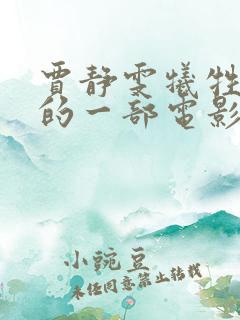 贾静雯犠牲
的一部电影
小豌豆
未经同意禁止转载